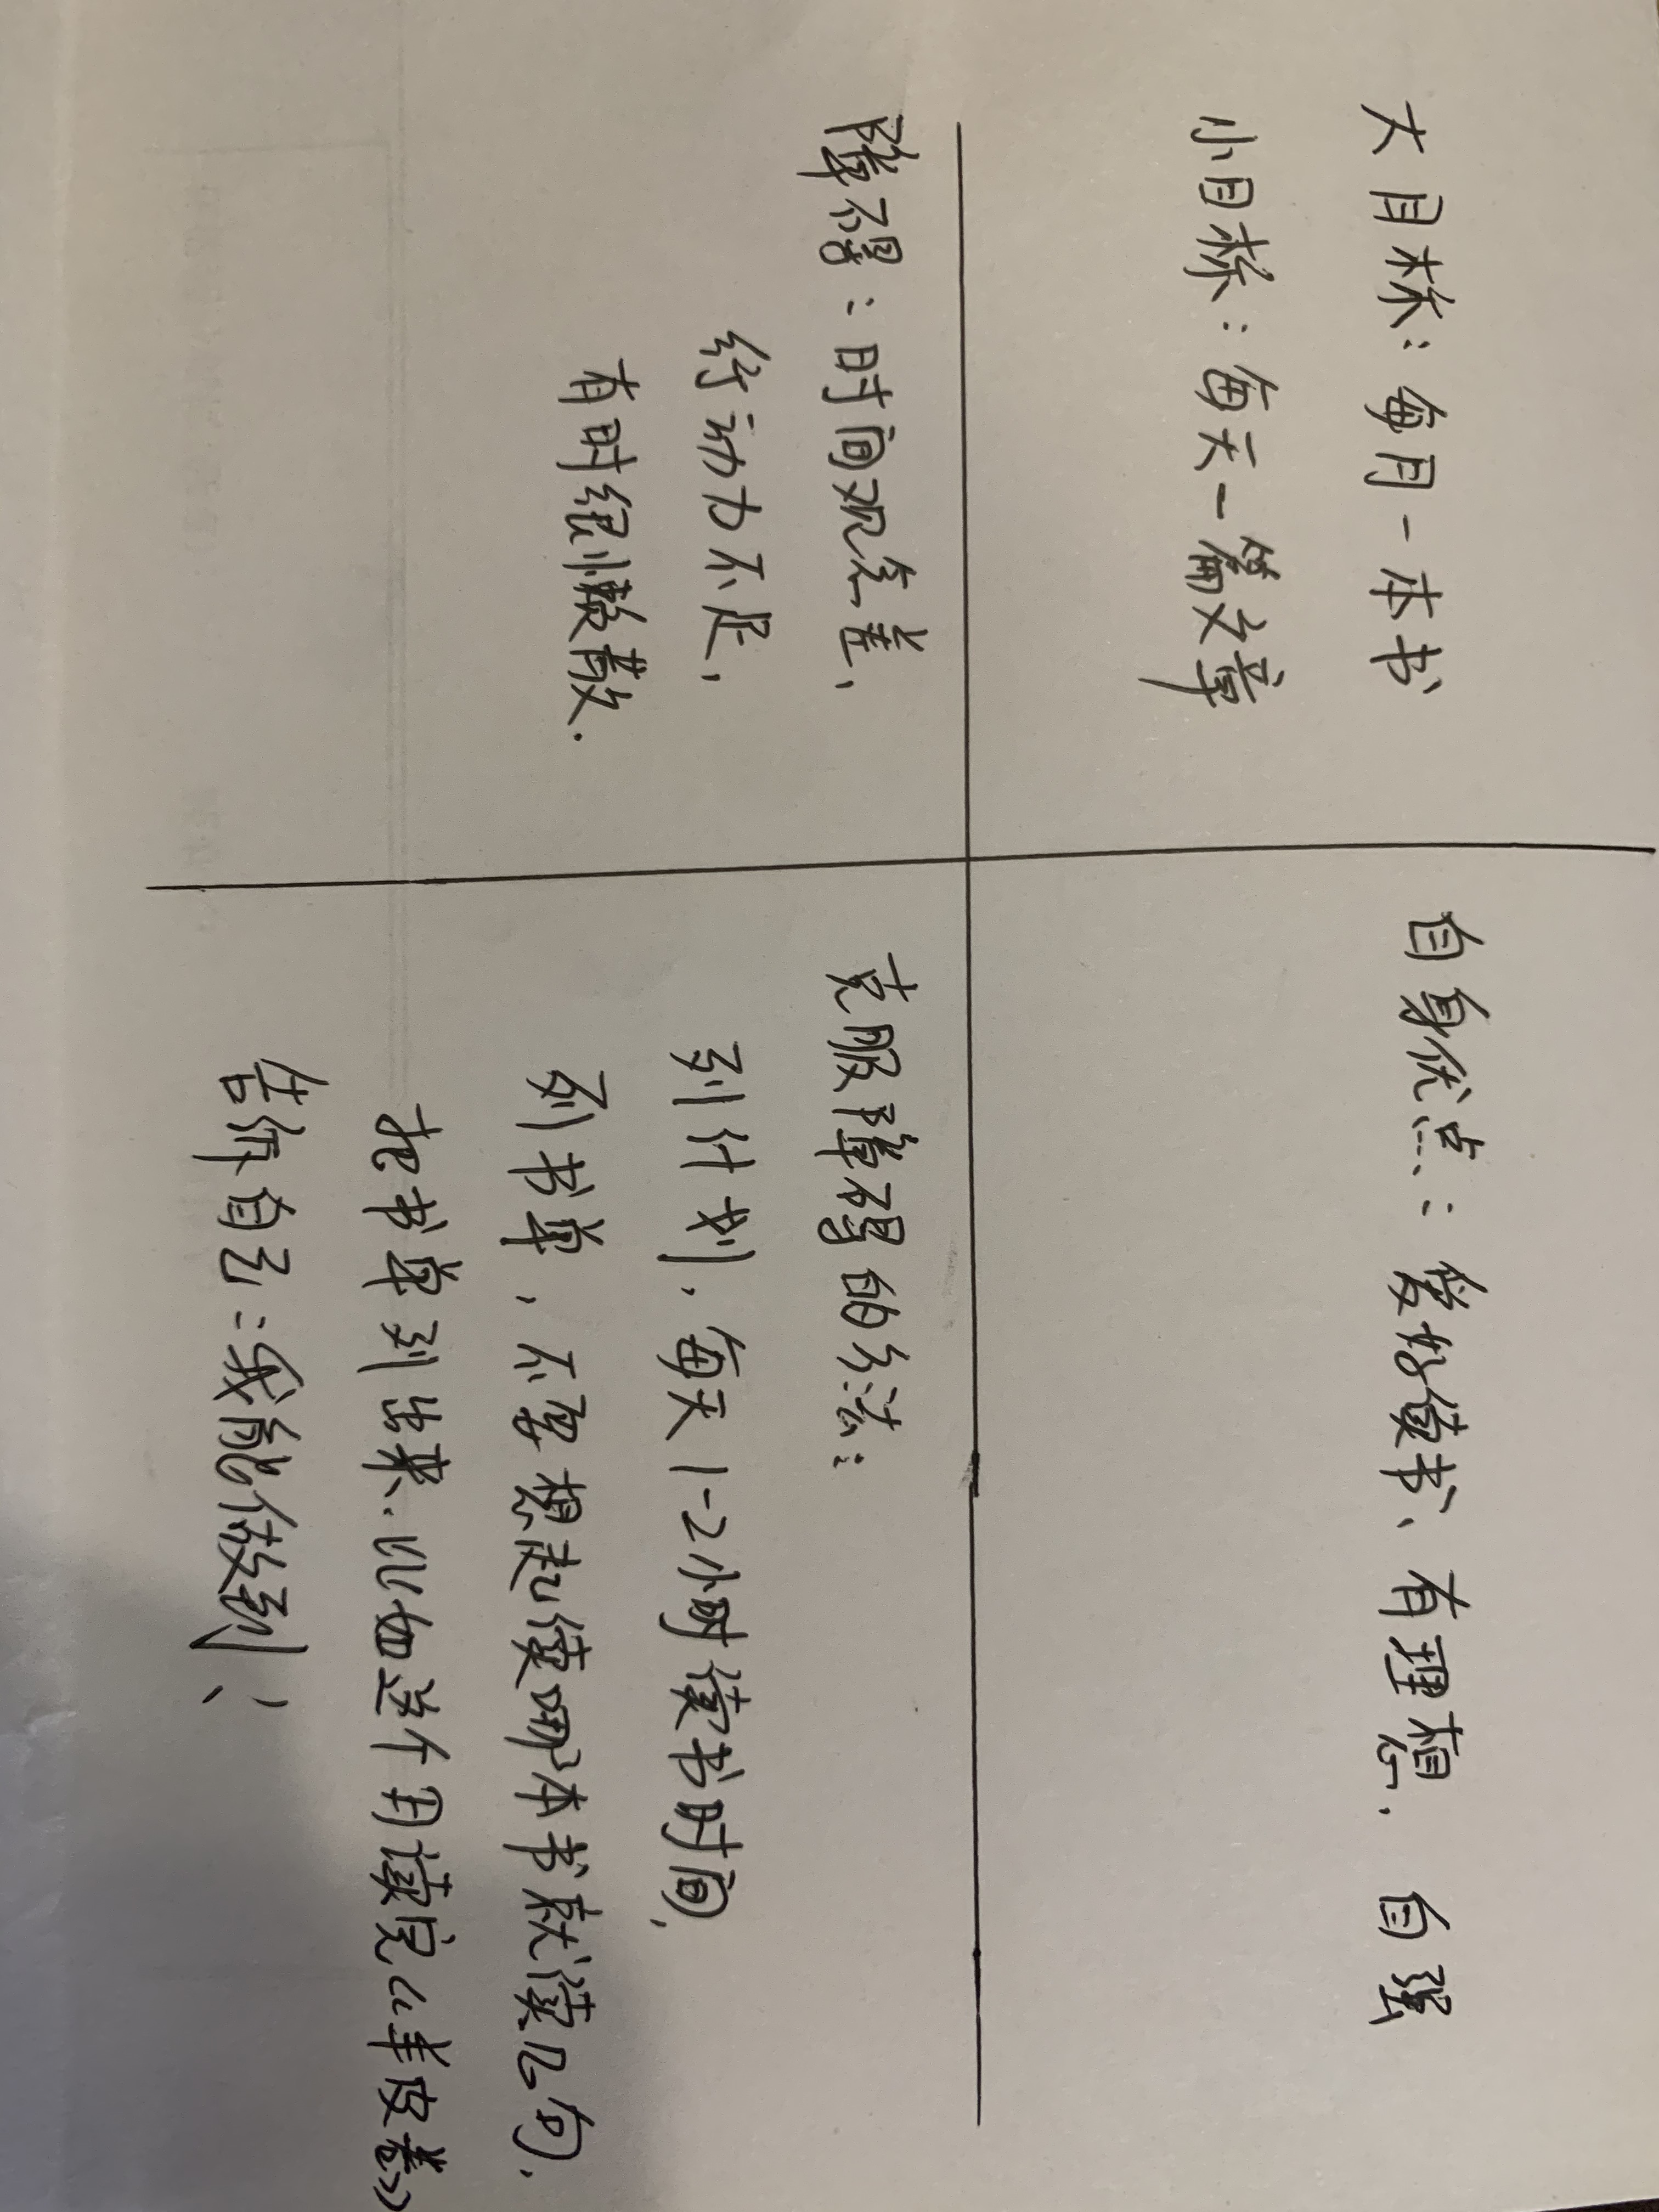 大目标：每月一本书
小目标：每天一篇文章
自身优点：爱好读书、有理想. 自强
障碍：时间观念差，
行动力不足，
有时很懒散.
克服障碍的方法：
列计划，每天1-2小时读书时间，
列书单，不要想起读哪本书就读几句，
把书单列出来.比如这个月读完《羊皮卷》
告诉自己：我能做到，